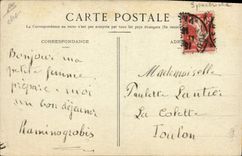 CARTE POSTALE
La Correspondance au recto n'est pas acceptée par tous les pays étrangers
CORRESPONDANCE
ADRESSE
Bonjour ma
petite femme
prépare-moi
un bon déjeuner
Raminogrobis
Mademoiselle
Paulette Lantier
La Colette
Toulon